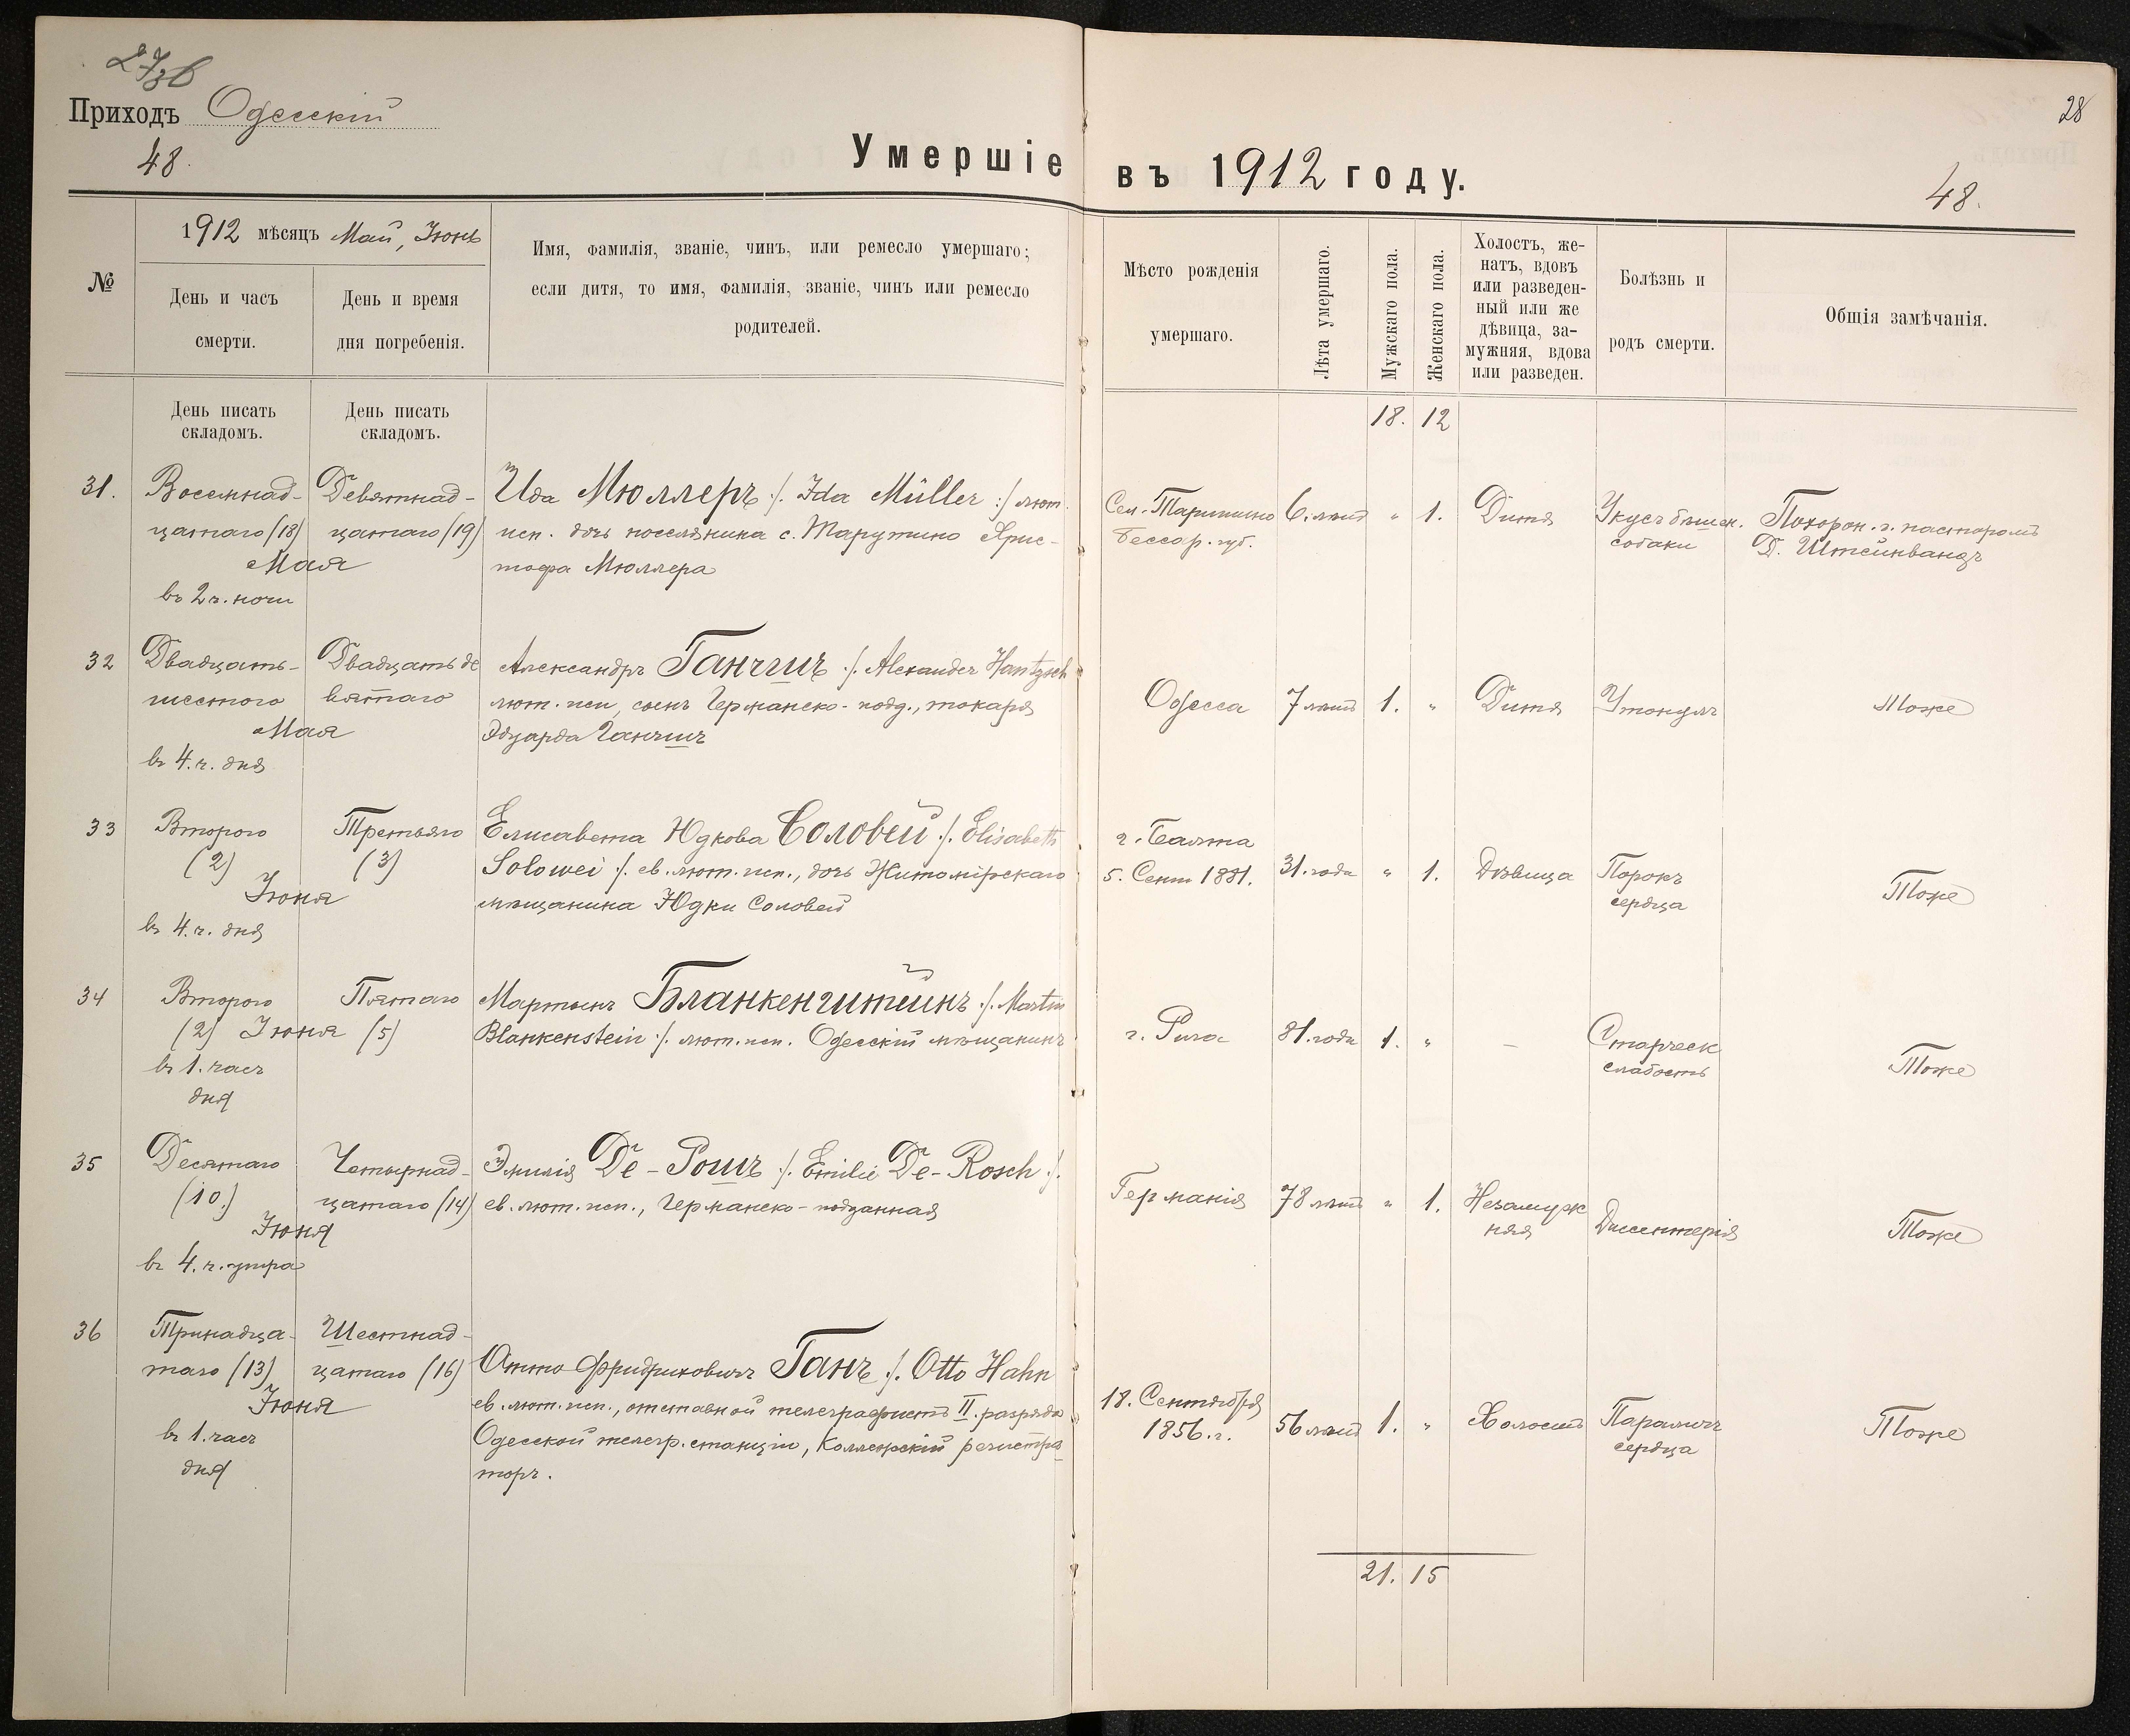 Приходъ Одесскій
48.
28
Умершіе въ 1912 году.
48.
№
1912 мѣсяцъ Май, Іюнь
День и часъ смерти.
День и время дня погребенія.
Имя, фамилія, званіе, чинъ, или ремесло умершаго;
если дитя, то имя, фамилія, званіе, чинъ или ремесло
родителей.
Мѣсто рожденія
умершаго.
Лѣта умершаго.
Мужскаго пола.
Женскаго пола.
Холостъ, же-
натъ, вдовъ
или разведен-
ный или же
дѣвица, за-
мужняя, вдова
или разведен.
Болѣзнь и
родъ смерти.
Общія замѣчанія.
День писать
складомъ.
День писать
складомъ.
18. 12
31.
Восемнад-
цатаго (18)
Девятнад-
цатаго (19)
Мая
въ 2 ч. ночи
Ида Мюллеръ /. Ida Müller :/ лют.
исп. дочь поселянина с. Тарутино Хрис-
тофа Мюллера
Сел. Тарутино
Бессар. губ.
6. лѣтъ
" 1.
Дитя
Укусъ бѣшен.
собаки
Похорон. г. пасторомъ
Д. Штейнвандъ
32
Двадцать-
шестого
Двадцать де
вятаго
Мая
въ 4. ч. дня
Александръ Ганчшъ /. Alexander Hantzsch
лют. исп, сынъ Германско-подд., токаря
Эдуарда Ганчшъ
Одесса
7 лѣтъ
1. "
Дитя
Утонулъ
Тоже
33
Второго
(2)
Третьяго
(3)
Іюня
въ 4. ч. дня
Елисавета Юдкова Соловей /. Elisabeth
Solowei /. ев. лют. исп., дочь Житомірскаго
мѣщанина Юдки Соловей
г. Балта
5. Сент 1881.
31. года
" 1.
Дѣвица
Порокъ
сердца
Тоже
34
Второго
(2) Іюня (5)
Пятаго
въ 1. часъ
дня
Мартынъ Бланкенштейнъ /. Martin
Blankenstein /. лют. исп. Одесскій мѣщанинъ
г. Рига
81. года
1. "
–
Старческ
слабость
Тоже
35
Десятаго
(10.)
Четырнад-
цатаго (14)
Іюня
въ 4. ч. утра
Эмилія Де-Рошъ /. Emilie De-Rosch /.
ев. лют. исп., Германско-подданная
Германія
78 лѣтъ
" 1.
Незамуж
няя
Диссентерія
Тоже
36
Тринадца-
таго (13)
Шестнад-
цатаго (16)
Іюня
въ 1. часъ
дня
Отто Фридриховичъ Ганъ /. Otto Hahn
ев. лют. исп., отставной телеграфистъ II. разряда
Одесской телегр. станціи, Коллежскій регистра
торъ.
18. Сентября
1856. г.
56 лѣтъ
1. "
Холостъ
Параличъ
сердца
Тоже
21. 15